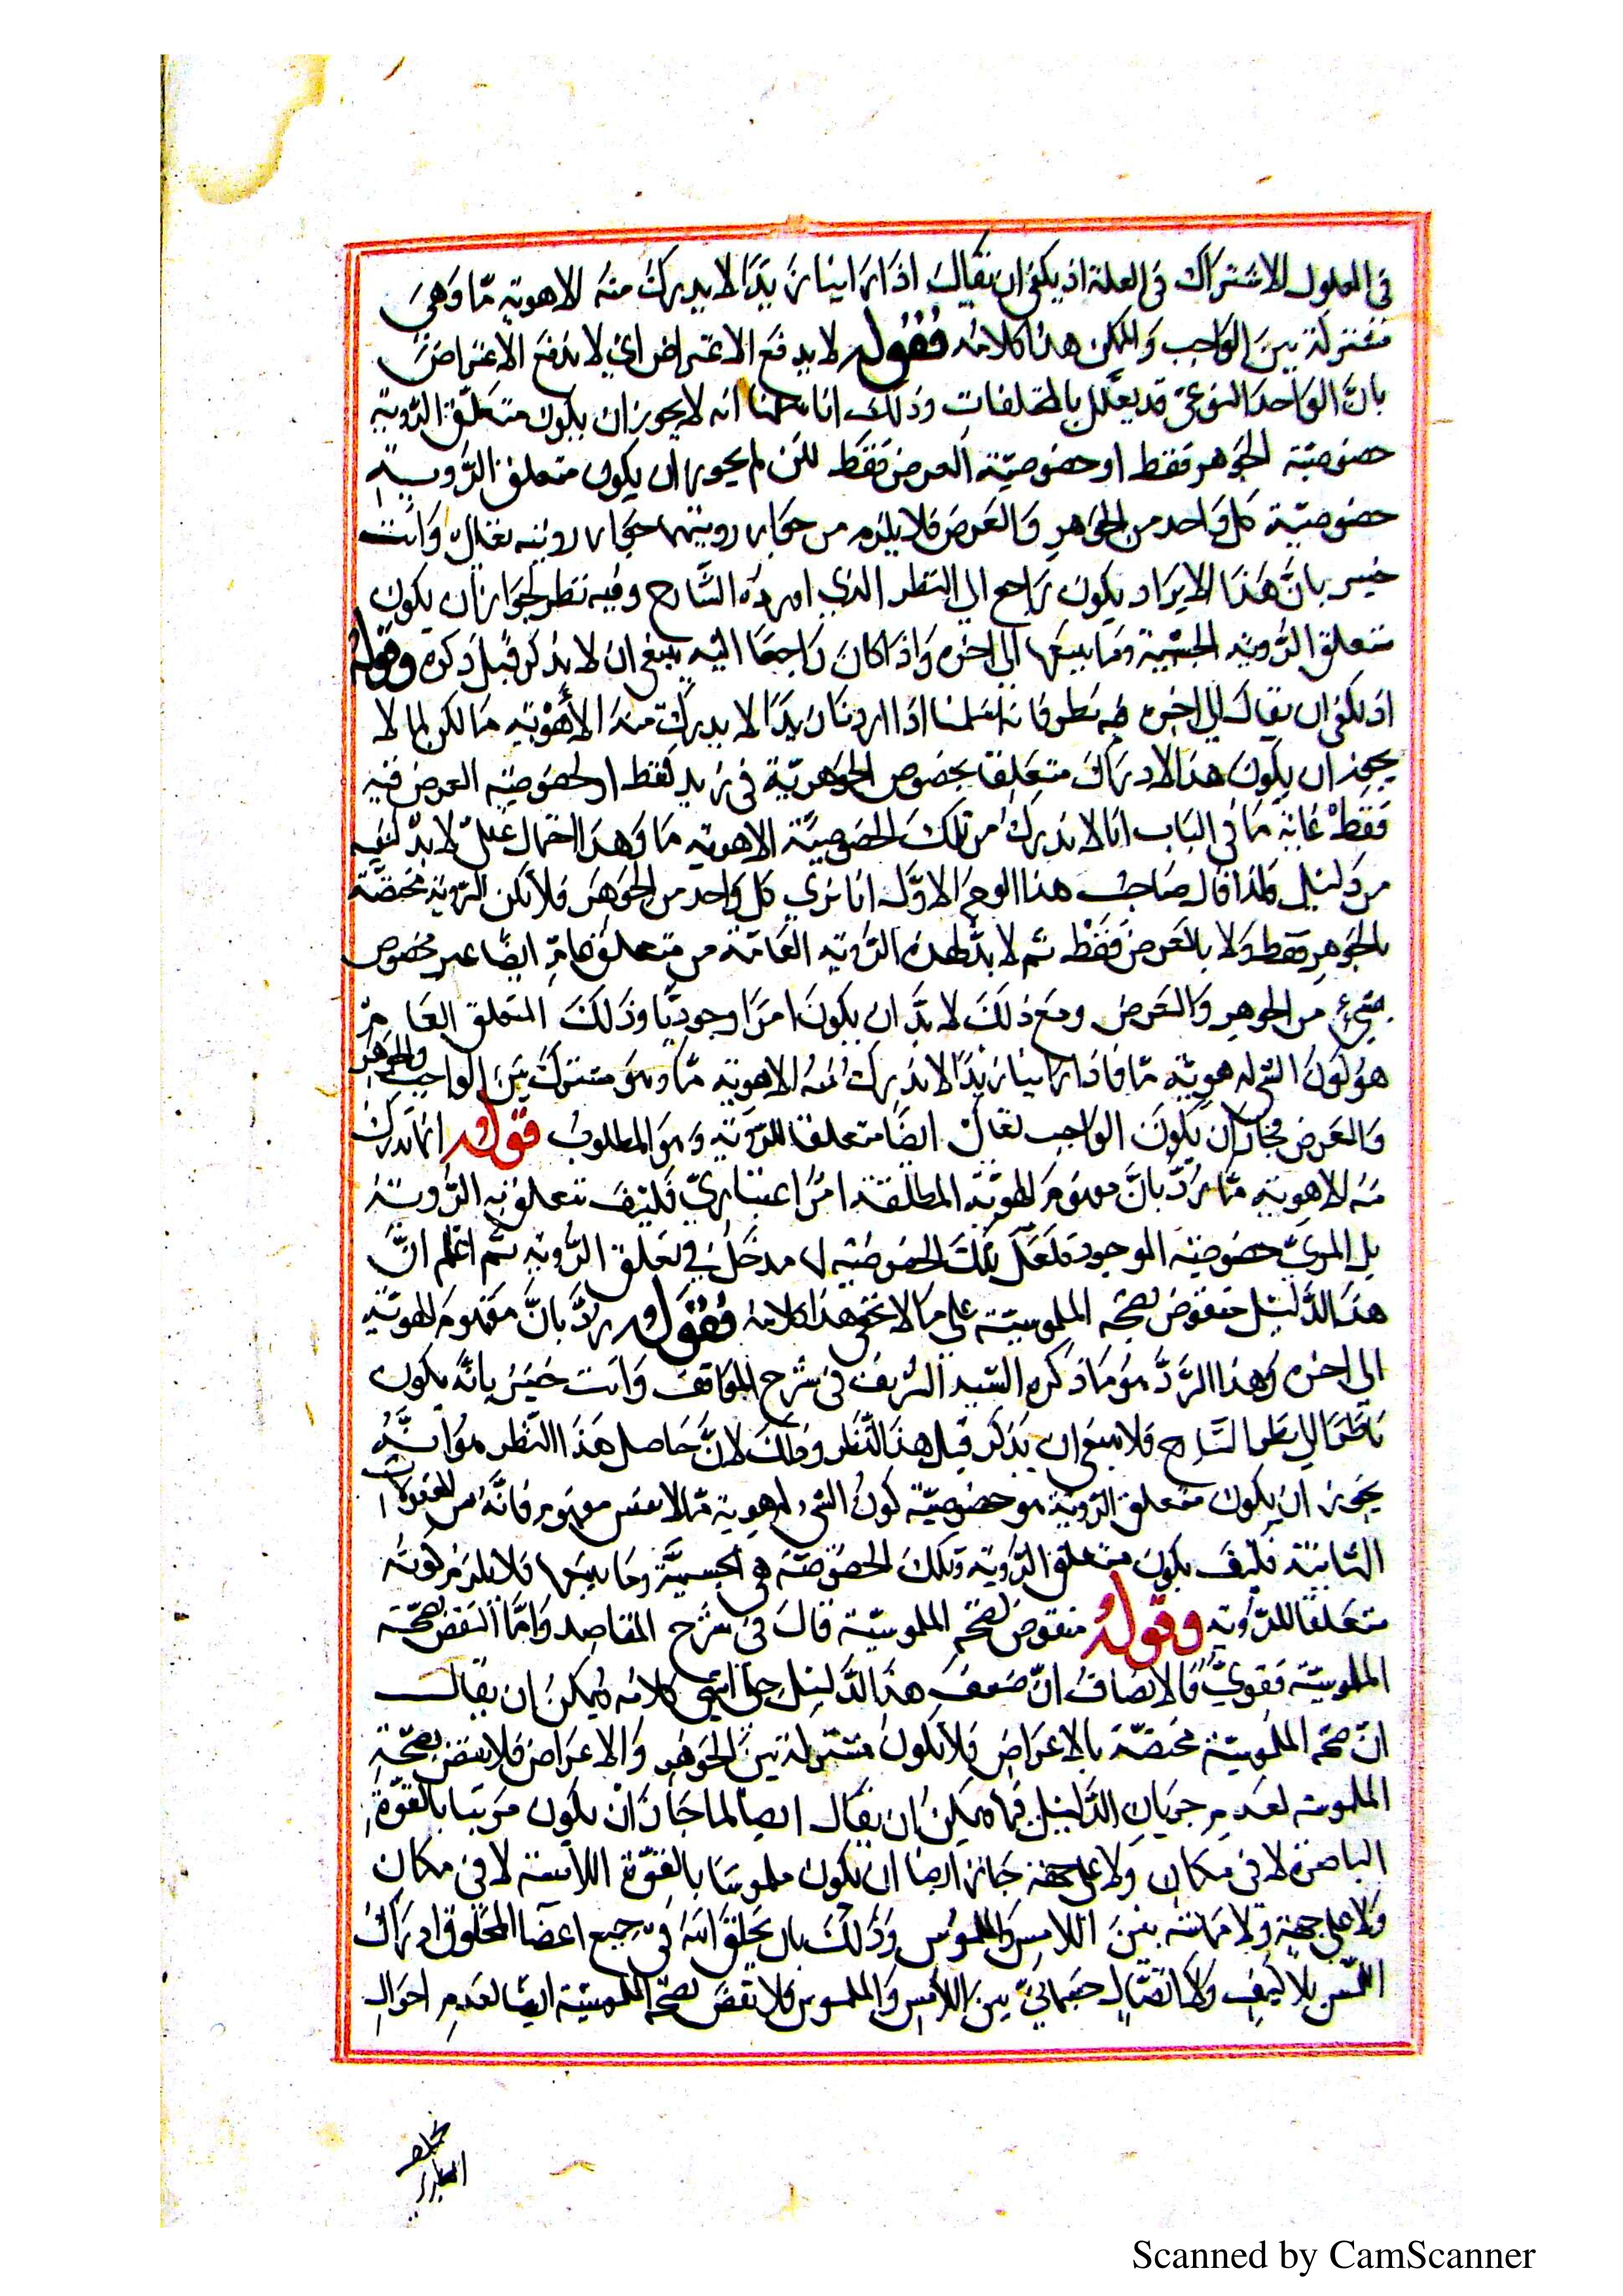 في المعلول الاشتراك في العلة اذ يكفي ان يقال اذا راينا زيدا لا يدرك منه الا هوية مّا وهي
مشتركة بين الواجب والممكن هذا كلامه فقوله لا يدفع الاعتراض اي لا يدفع الاعتراض
بانّ الواحد النوعيّ قد يعلّل بالمختلفات وذلك انا سلمنا انه لا يجوز ان يكون متعلّق الرّوية
خصوصيّة الجوهر فقط او خصوصيّة العرض فقط لكن لم يجوز ان يكون متعلق الرّوية
خصوصيّة كل واحد من الجوهر والعرض فلا يلزم من جواز رويتهما جواز رويته تعالى وانت
خبير بانّ هذا الايراد يكون راجع الي النظر الذي اورده الشّارح وفيه نظر لجواز ان يكون
متعلق الرّوية الجسمية وما يتبعها الى اخره واذا كان راجعا اليه ينبغي ان لا يذكر قبل ذكره وقوله
اذ يكفي ان يقال الى اخره فيه نظر فانه اسلمنا اذا اردنا زيدًا لا يدرك منه الا هوّية ما لكن لما لا
يجوز ان يكون هذا الادراك متعلقا بخصوص الجوهريّة في زيد فقط او لخصوصيّة العرض فيه
فقط غاية ما في الباب انا لا ندرك من تلك الخصوصيّة الا هوية ما وهذا احتمال عقليّ لا بدّ لنفيه
من دليل ولذا قال صاحب هذا الوجه الاوّل انا نري كل واحد من الجوهر فلا يكن الرّوية مختصّة
بالجوهر فقط ولا بالعرض فقط ثم لا بدّ لهذه الرّوية العامّة من متعلق عامّ ايضًا غير مخصوص
بشيء من الجوهر والعرض ومع ذلك لا بدّ ان يكون امرًا وجوديًّا وذلك المتعلق العامّ
هو كون الشي له هويّة مّا فاذا راينا زيدًا لا ندرك منه الا هوية مّا وهو مشترك بين الواجب والجوهر
والعرض فجاز ان يكون الواجب تعالى ايضًا متعلقا للرّوية وهو المطلوب قوله انما ندرك
منه الا هوية مّا ردّ بانّ مفهوم الهويّة المطلقة امر اعتباريّ فكيف تتعلق به الرّوية
بل المرئيّ خصوصيّة الموجود فلعلّ تلك الخصوصيّة لها مدخل في تعلق الرّوية ثم اعلم انّ
هذا الدّليل منقوض بصحّة الملموسيّة على ما لا تخفي هذا كلامه فقوله ردّ بانّ مفهوم الهويّة
الى اخره وهذا الرّدّ هو ما ذكره السّيد الشريف في شرح المواقف وانت خبير بانّه يكون
ناظرا الى نظر الشارح فلا ينبغي ان يذكر قبل هذا النّظر وذلك لانّ حاصل هذا النّظر هو انّه
يجوز ان يكون متعلق الرّوية هو خصوصيّة كون الشي له هوية مّا لا نفس مفهومه فانّه من المعقولات
الثانية فكيف يكون متعلق الرّوية وتلك الخصوصيّة هي الجسميّة وما يتبعها فلا يلزم كونه
متعلقا للرّوية وقوله منقوض بصحّة الملموسيّة قال في شرح المقاصد وامّا النقض بصحّة
الملموسيّة فقويّ والانصاف انّ ضعف هذا الدّليل جلي انتهى كلامه ويمكن ان يقال
انّ صحّة الملموسيّة مختصّة بالاعراض فلا يكون مشتركة بين الجوهر والاعراض فلا نقض بصحّة
الملموسية لعدم جريان الدّليل فيها ويمكن ان يقال ايضا لما جاز ان يكون مرئيا بالقوّة
الباصرة لا في مكان ولا على جهة جاز ايضا ان يكون ملموسا بالقوّة اللامسة لا في مكان
ولا على جهة ولا مماسة بين اللامس والملموس وذلك بان يخلق الله في جميع اعضا المخلوق ادراك
اللّمس بلا كيف ولا اتّصال جسمانيّ بين اللامس والملموس فلا نقض بصحّة الملموسيّة ايضًا لعدم احوال
Scanned by CamScanner